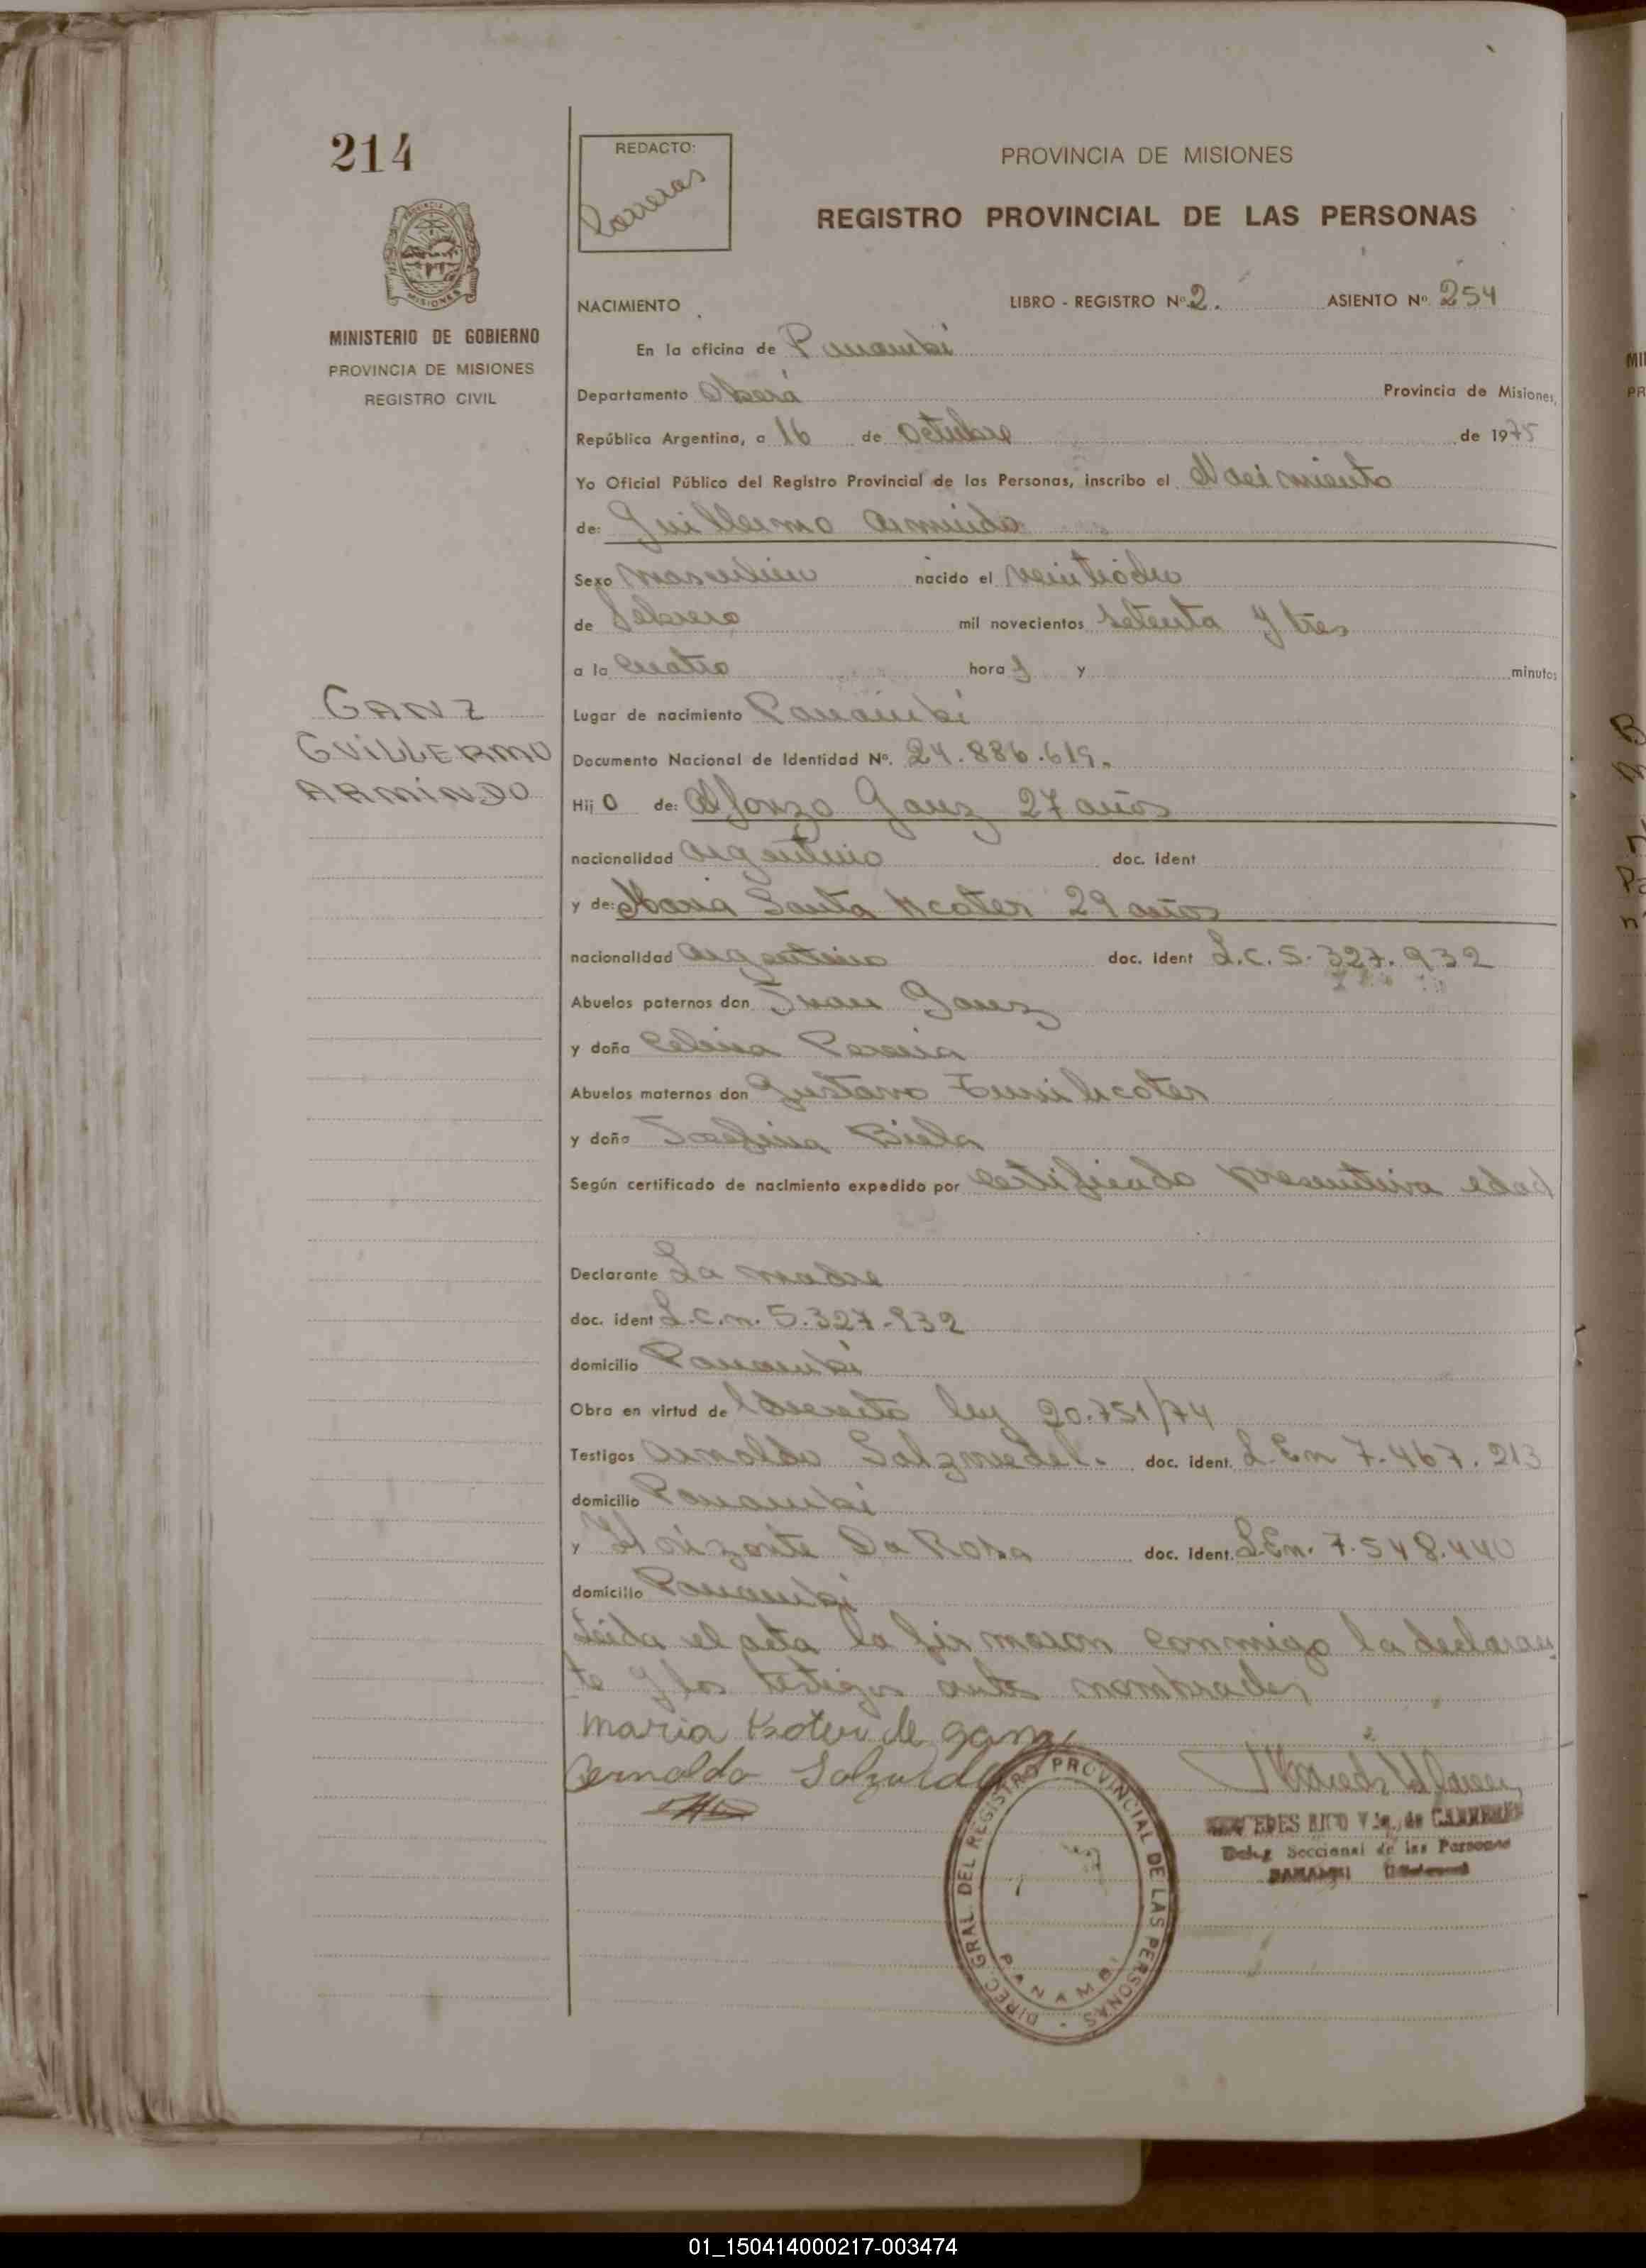 214
REDACTO:
Carreras
PROVINCIA DE MISIONES
REGISTRO PROVINCIAL DE LAS PERSONAS
MISIONES
MINISTERIO DE GOBIERNO
PROVINCIA DE MISIONES
REGISTRO CIVIL
NACIMIENTO LIBRO - REGISTRO Nº 2. ASIENTO Nº 254
En la oficina de Panambi
Departamento Oberá Provincia de Misiones,
República Argentina, a 16 de Octubre de 1975
Yo Oficial Público del Registro Provincial de las Personas, inscribo el Nacimiento
de: Guillermo Armindo
Sexo masculino nacido el veintiocho
de Febrero mil novecientos setenta y tres
a la cuatro hora s y minutos
GANZ
GUILLERMO
ARMINDO
Lugar de nacimiento Panambi
Documento Nacional de Identidad Nº. 24.886.619.
Hij o de: Alfonzo Ganz 27 años
nacionalidad argentino doc. ident
y de: Maria Santa Kcoter 29 años
nacionalidad argentina doc. ident L.C. 5.327.932
Abuelos paternos don Juan Ganz
y doña Celina Pereira
Abuelos maternos don Gustavo Kcoter
y doña Josefina Biela
Según certificado de nacimiento expedido por certificado presuntiva edad
Declarante La madre
doc. ident L.C.n. 5.327-932
domicilio Panambi
Obra en virtud de decreto ley 20.751/74
Testigos Arnoldo Salzwedel. doc. ident. L.En 7.467.213
domicilio Panambi
y Da Rosa doc. ident. L.En. 7.548.440
domicilio Panambi
Leida el acta la firmaron conmigo la declaran
te y los testigos antes nombrados
Maria Kcoter de ganz
Arnoldo Salzwedel
DIREC. GRAL. DEL REGISTRO PROVINCIAL DE LAS PERSONAS -
PANAMBI
RICO Vda. de CARRERAS
Deleg. Seccional de las Personas
PANAMBI
01_150414000217-003474